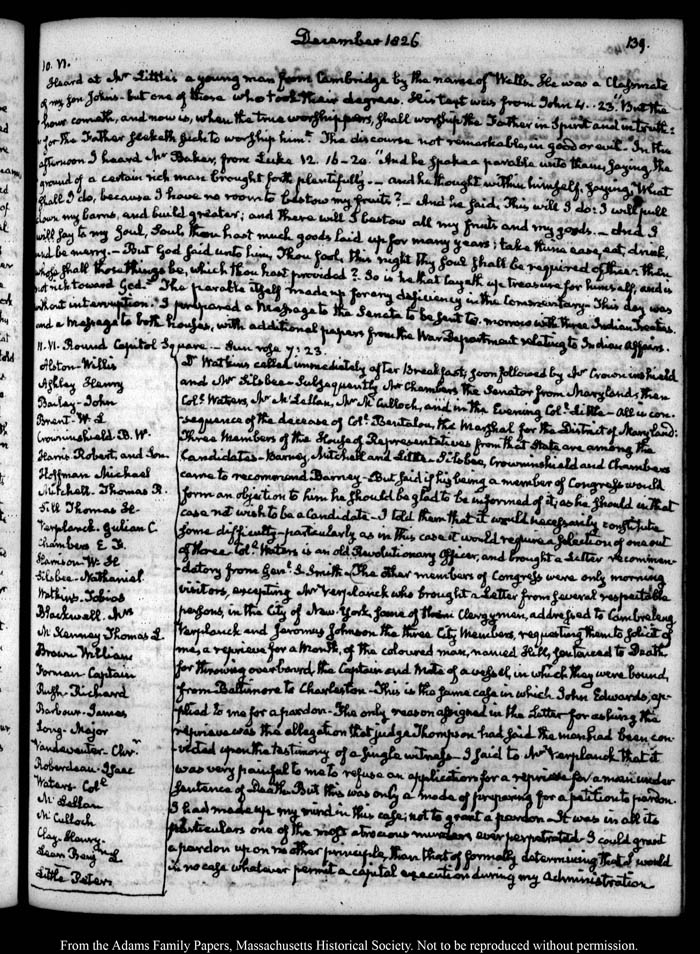 December 1826
139.
10. VI.
Heard at Mr Little's a young man from Cambridge by the name of Wells. He was a Classmate
of my son John's - but one of those who took their degrees. His text was from John 4. 23. But the
hour cometh, and now is, when the true worshippers, shall worship the Father in Spirit and in truth:
for the Father seeketh such to worship him. The discourse not remarkable, in good or evil. In the
afternoon I heard Mr Baker, from Luke 12. 16-20. And he spake a parable unto them, saying, The
ground of a certain rich man brought forth plentifully. - and he thought within himself, saying, What
shall I do, because I have no room to bestow my fruits? - And he said: This will I do: I will pull
down my barns, and build greater; and there will I bestow all my fruits and my goods. - And I
will say to my Soul, Soul thou hast much goods laid up for many years; take thine ease, eat, drink,
and be merry. - But God said unto him, Thou fool, this night thy Soul shall be required of thee: then
whose shall those things be, which thou hast provided? So is he that layeth up treasure for himself, and is
not rich toward God. The parable itself made up for any deficiency in the Commentary. This day was
without interruption. I prepared a Message to the Senate to be sent to morrow with three Indian Treaties.
and a Message to both houses, with additional papers from the War Department relating to Indian Affairs.
11. VI. Round Capitol Square. - Sun rose 7: 23.
Alston - Willis
Ashley Henry
Bailey - John
Brent - W. L
Crowninshield B. W.
Harris Robert, and Son.
Hoffman Michael
Mitchell - Thomas R.
Sill Thomas H
Verplanck Gulian C.
Chambers E F.
Harrison - W. H
Silsbee - Nathaniel
Watkins - Tobias
Blackwell Mrs
McKenney Thomas L.
Brown William
Forman Captain
Rush - Richard
Barbour - James
Long - Major
Vandeventer - Chr.
Roberdeau - Isaac
Waters - Col.
McLellan
McCulloch
Clay - Henry
Little Peter
Dr Watkins called immediately after Breakfast; soon followed by Mr Crowninshield
and Mr Silsbee - Subsequently Mr Chambers the Senator from Maryland; then
Col. Waters, Mr McLellan, Mr McCulloch, and in the Evening Col. Little - all in con-
sequence of the decease of Col. Bentalou, the Marshal for the District of Maryland:
Three Members of the House of Representatives from that State are among the
Candidates - Barney, Mitchell and Little - Silsbee, Crowninshield and Chambers
came to recommend Barney - But said if his being a member of Congress would
form an objection to him he should be glad to be informed of it; as he should in that
case not wish to be a Candidate - I told them that it would necessarily constitute
some difficulty - particularly as in this case it would require a selection of one out
of three. Col. Waters is an old Revolutionary Officer, and brought a Letter recommen-
datory from Genl. S. Smith. The other members of Congress were only morning
visitors, excepting Mr Verplanck who brought a Letter from several respectable
persons, in the City of New-York, some of them Clergymen, addressed to Cambreleng
Verplanck and Jeromus Johnson the three City Members, requesting them to solicit of
me, a reprieve for a Month, of the coloured man, named Hill, sentenced to Death
for throwing overboard, the Captain and Mate of a vessel, in which they were bound,
from Baltimore to Charleston - This is the same case in which John Edwards, ap-
plied to me for a pardon - The only reason assigned in the Letter for asking this
reprieve was the allegation that judge Thompson had said the man had been con-
victed upon the testimony of a single witness - I said to Mr Verplanck that it
was very painful to me to refuse an application for a reprieve for a man under
sentence of Death. But this was only a mode of preparing for a petition to pardon.
I had made up my mind in this case; not to grant a pardon - It was in all its
particulars one of the most atrocious murders ever perpetrated - I could grant
a pardon upon no other principle, than that of formally determining that I would
in no case whatever permit a capital execution during my Administration
From the Adams Family Papers, Massachusetts Historical Society. Not to be reproduced without permission.